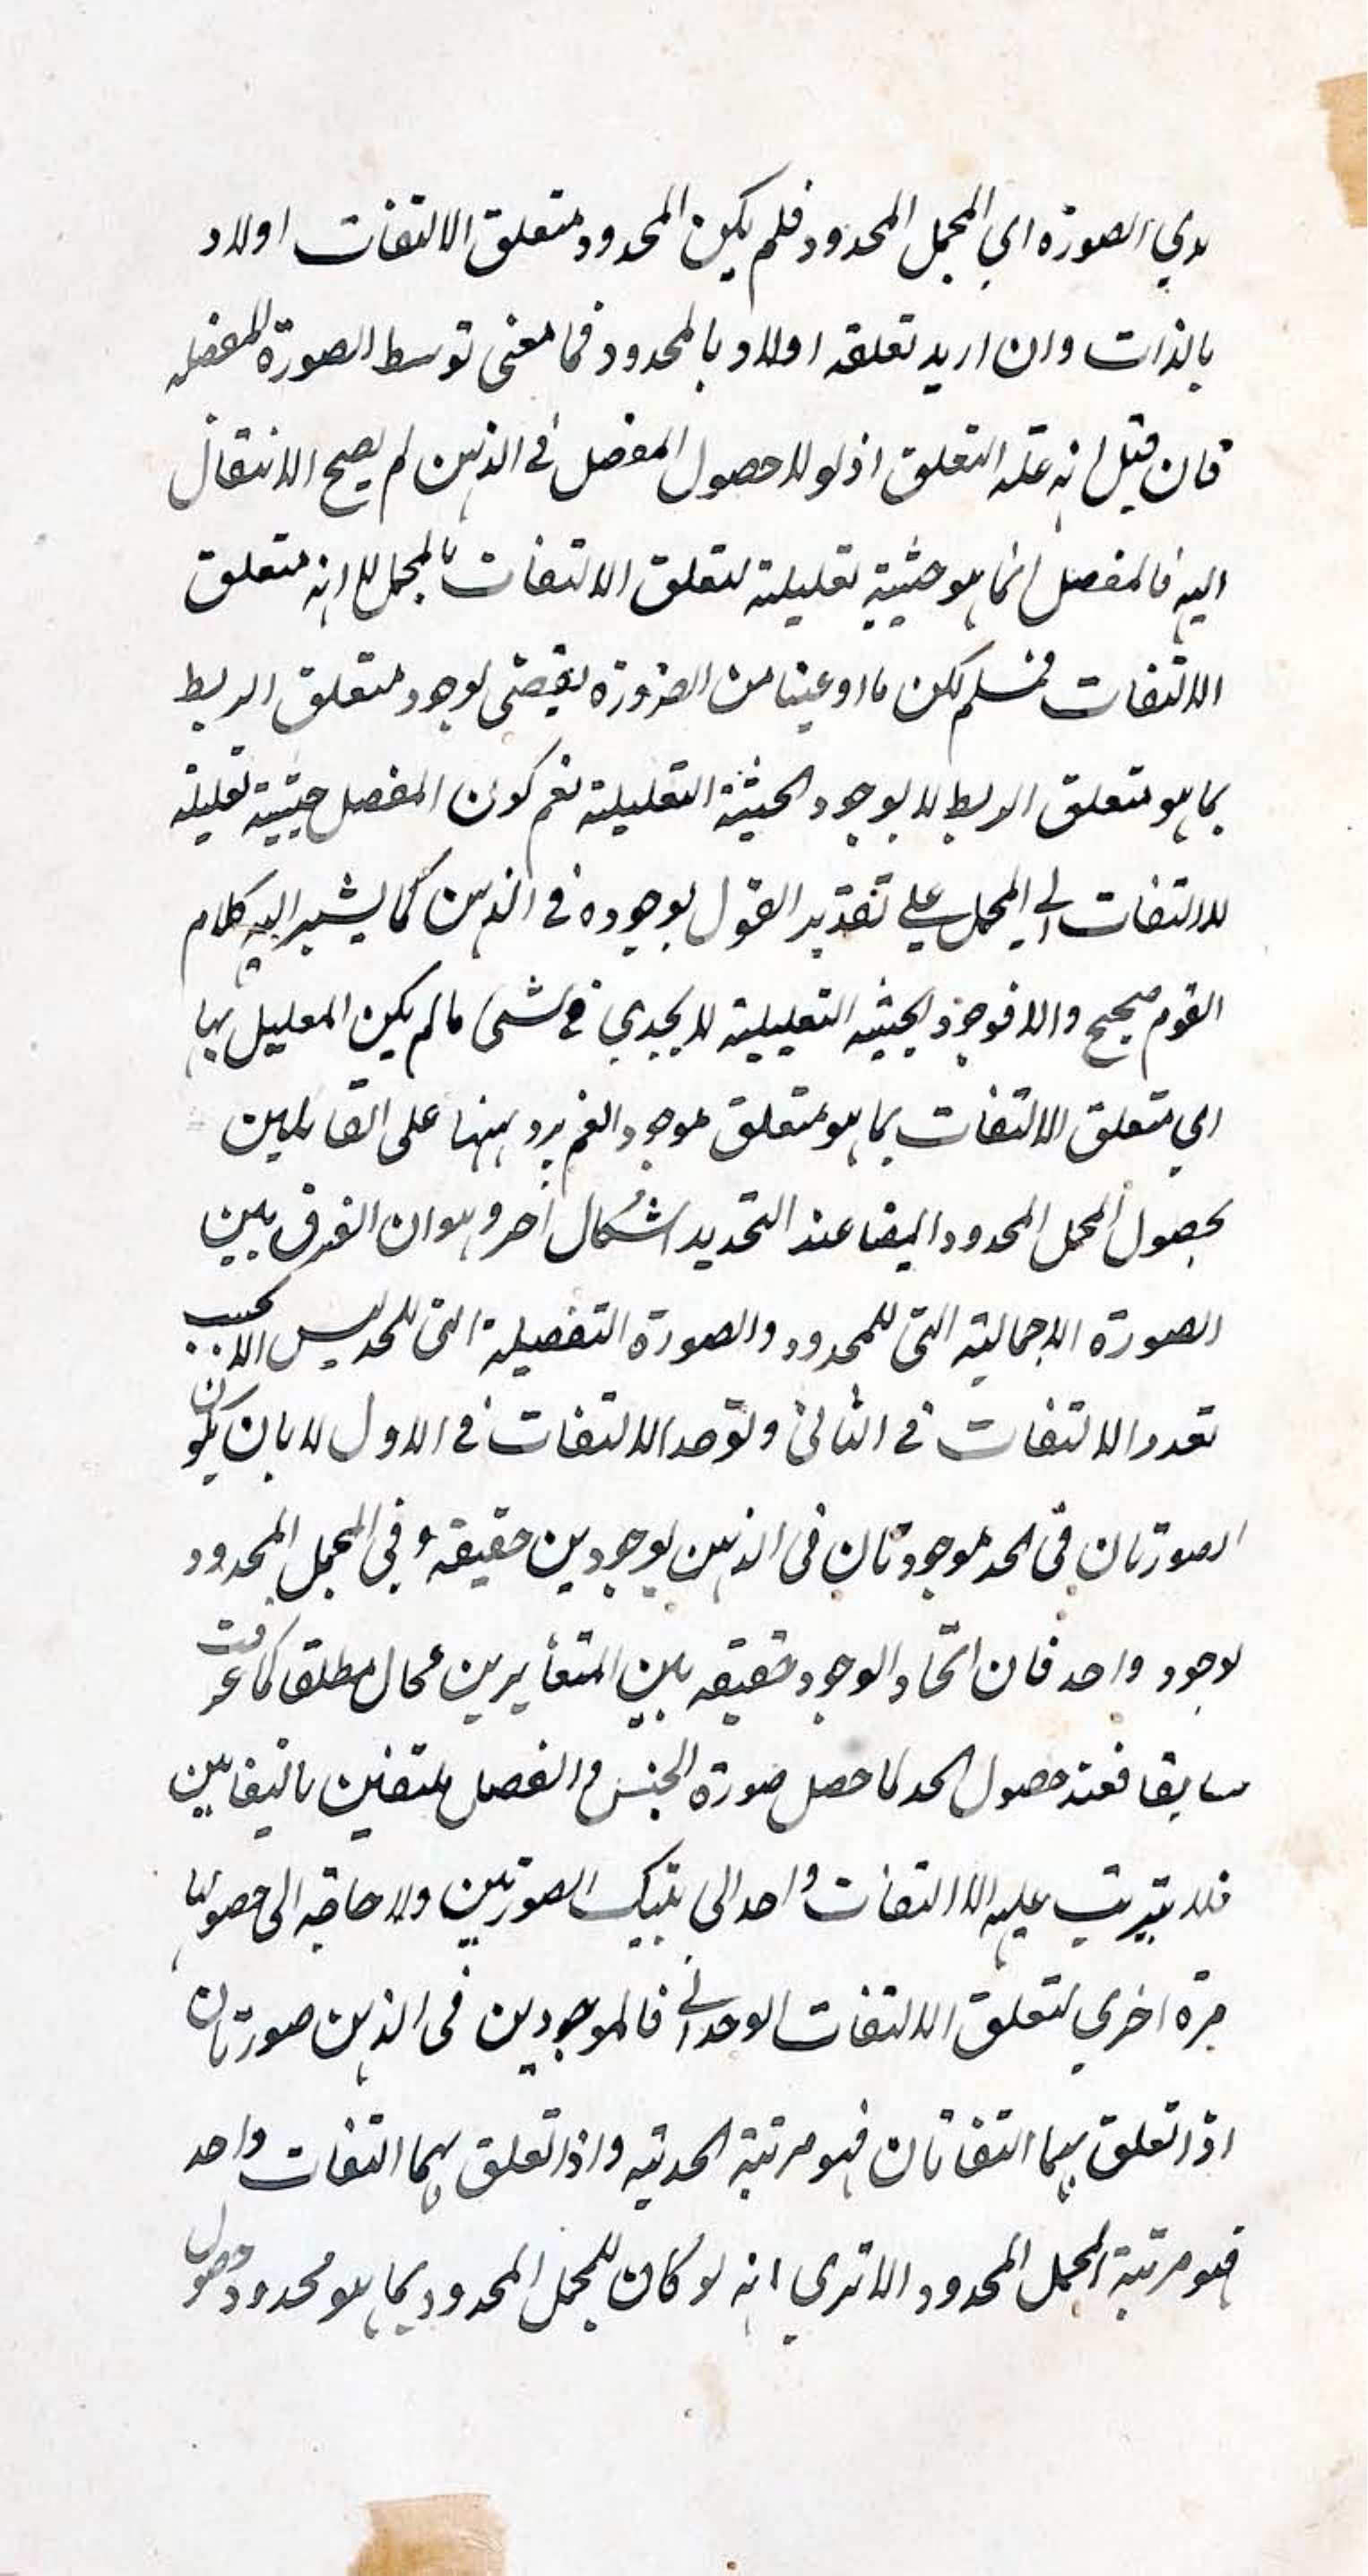 ىدي الصورة اي المجمل المحدود فلم يكن المحدود متعلق الالتفات اولا و
بالذات وان اريد تعلقه اولا و بالمحدود فما معنى توسط الصورة المفصله
فان قيل انه علة التعلق اذ لولا حصول المفصل في الذهن لم يصح الانتقال
اليه فالمفصل انما هو حيثية تعليلية لتعلق الالتفات بالمجمل لا انه متعلق
الالتفات فمسلم لكن ما ادعينا من الضرورة يقتضى لوجود متعلق الربط
بما هو متعلق الربط لا بوجود الحيثية التعليلية نعم كون المفصل حيثية تعليلية
للالتفات الى المجمل على تقدير القول بوجوده في الذهن كما يشير اليه كلام
القوم صحيح والا فوجود الحيثيه التعليلية لا يجدي في شئ ما لم يكن المعليل بها
اي متعلق الالتفات بما هو متعلق موجودا نعم يرد ههنا على القائلين
بحصول المجمل المحدود ايضا عند التحديد اشكال اخر وهو ان الفرق بين
الصورة الاجمالية التى للمحدود والصورة التفصيلة التى للحد ليس الا بحسب
تعدد الالتفات في الثانى وتوحد الالتفات في الاول لا بان يكون
الصورتان فى الحد موجودتان فى الذهن بوجودين حقيقه وفى المجمل المحدود
لوجود واحد فان اتحاد الوجود حقيقه بين المتغايرين محال مطلقا كما عرفت
سابقا فعند حصول الحد لما حصل صورة الجنس والفصل ملتفتين بالتفاتين
فلا يترتب عليه الا التفات واحد الى تينك الصورتين ولا حاجة الى حصولها
مرة اخرى لتعلق الالتفات الوحدانى فالموجودين فى الذهن صورتان
اذا تعلق بهما التفاتان فهو مرتبة الحدية واذا تعلق بهما التفات واحد
فهو مرتبة المجمل المحدود الا ترى انه لو كان للمجمل المحدود بما هو محدود حصول